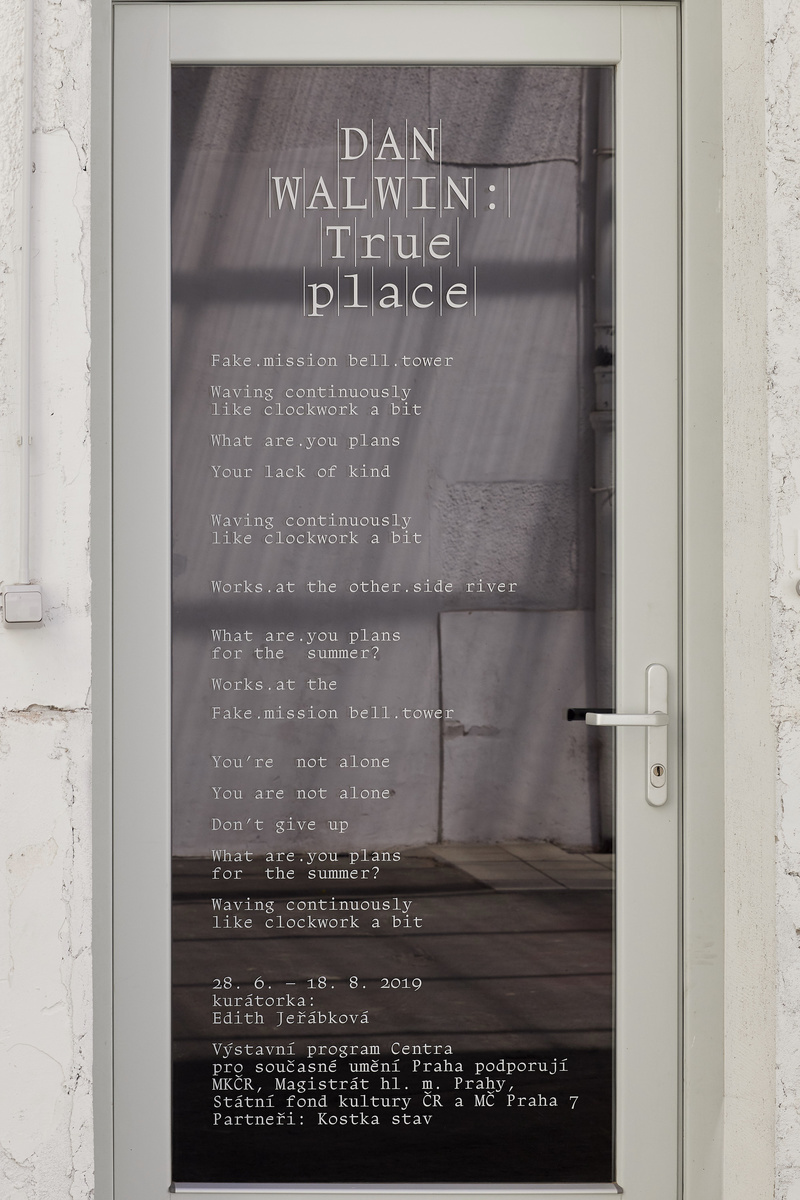 DAN
WALWIN:
True
place
Fake.mission bell.tower
Waving continuously
like clockwork a bit
What are.you plans
Your lack of kind
Waving continuously
like clockwork a bit
Works.at the other.side river
What are.you plans
for the  summer?
Works.at the
Fake.mission bell.tower
You're  not alone
You are not alone
Don't give up
What are.you plans
for  the summer?
Waving continuously
like clockwork a bit
28. 6. – 18. 8. 2019
kurátorka:
Edith Jeřábková
Výstavní program Centra
pro současné umění Praha podporují
MKČR, Magistrát hl. m. Prahy,
Státní fond kultury ČR a MČ Praha 7
Partneři: Kostka stav